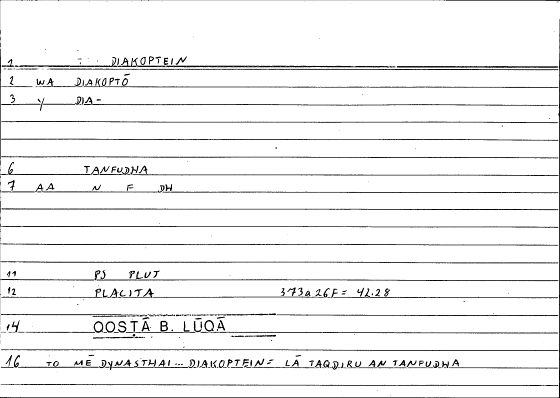 1 DIAKOPTEIN
2 WA DIAKOPTŌ
3 y DIA-
6 TANFUDHA
7 AA N F DH
11 PS PLUT
12 PLACITA 373a26F= 42.28
14 QOSṬĀ B. LŪQĀ
16 TO MĒ DYNASTHAI... DIAKOPTEIN= LĀ TAQDIRU AN TANFUDHA